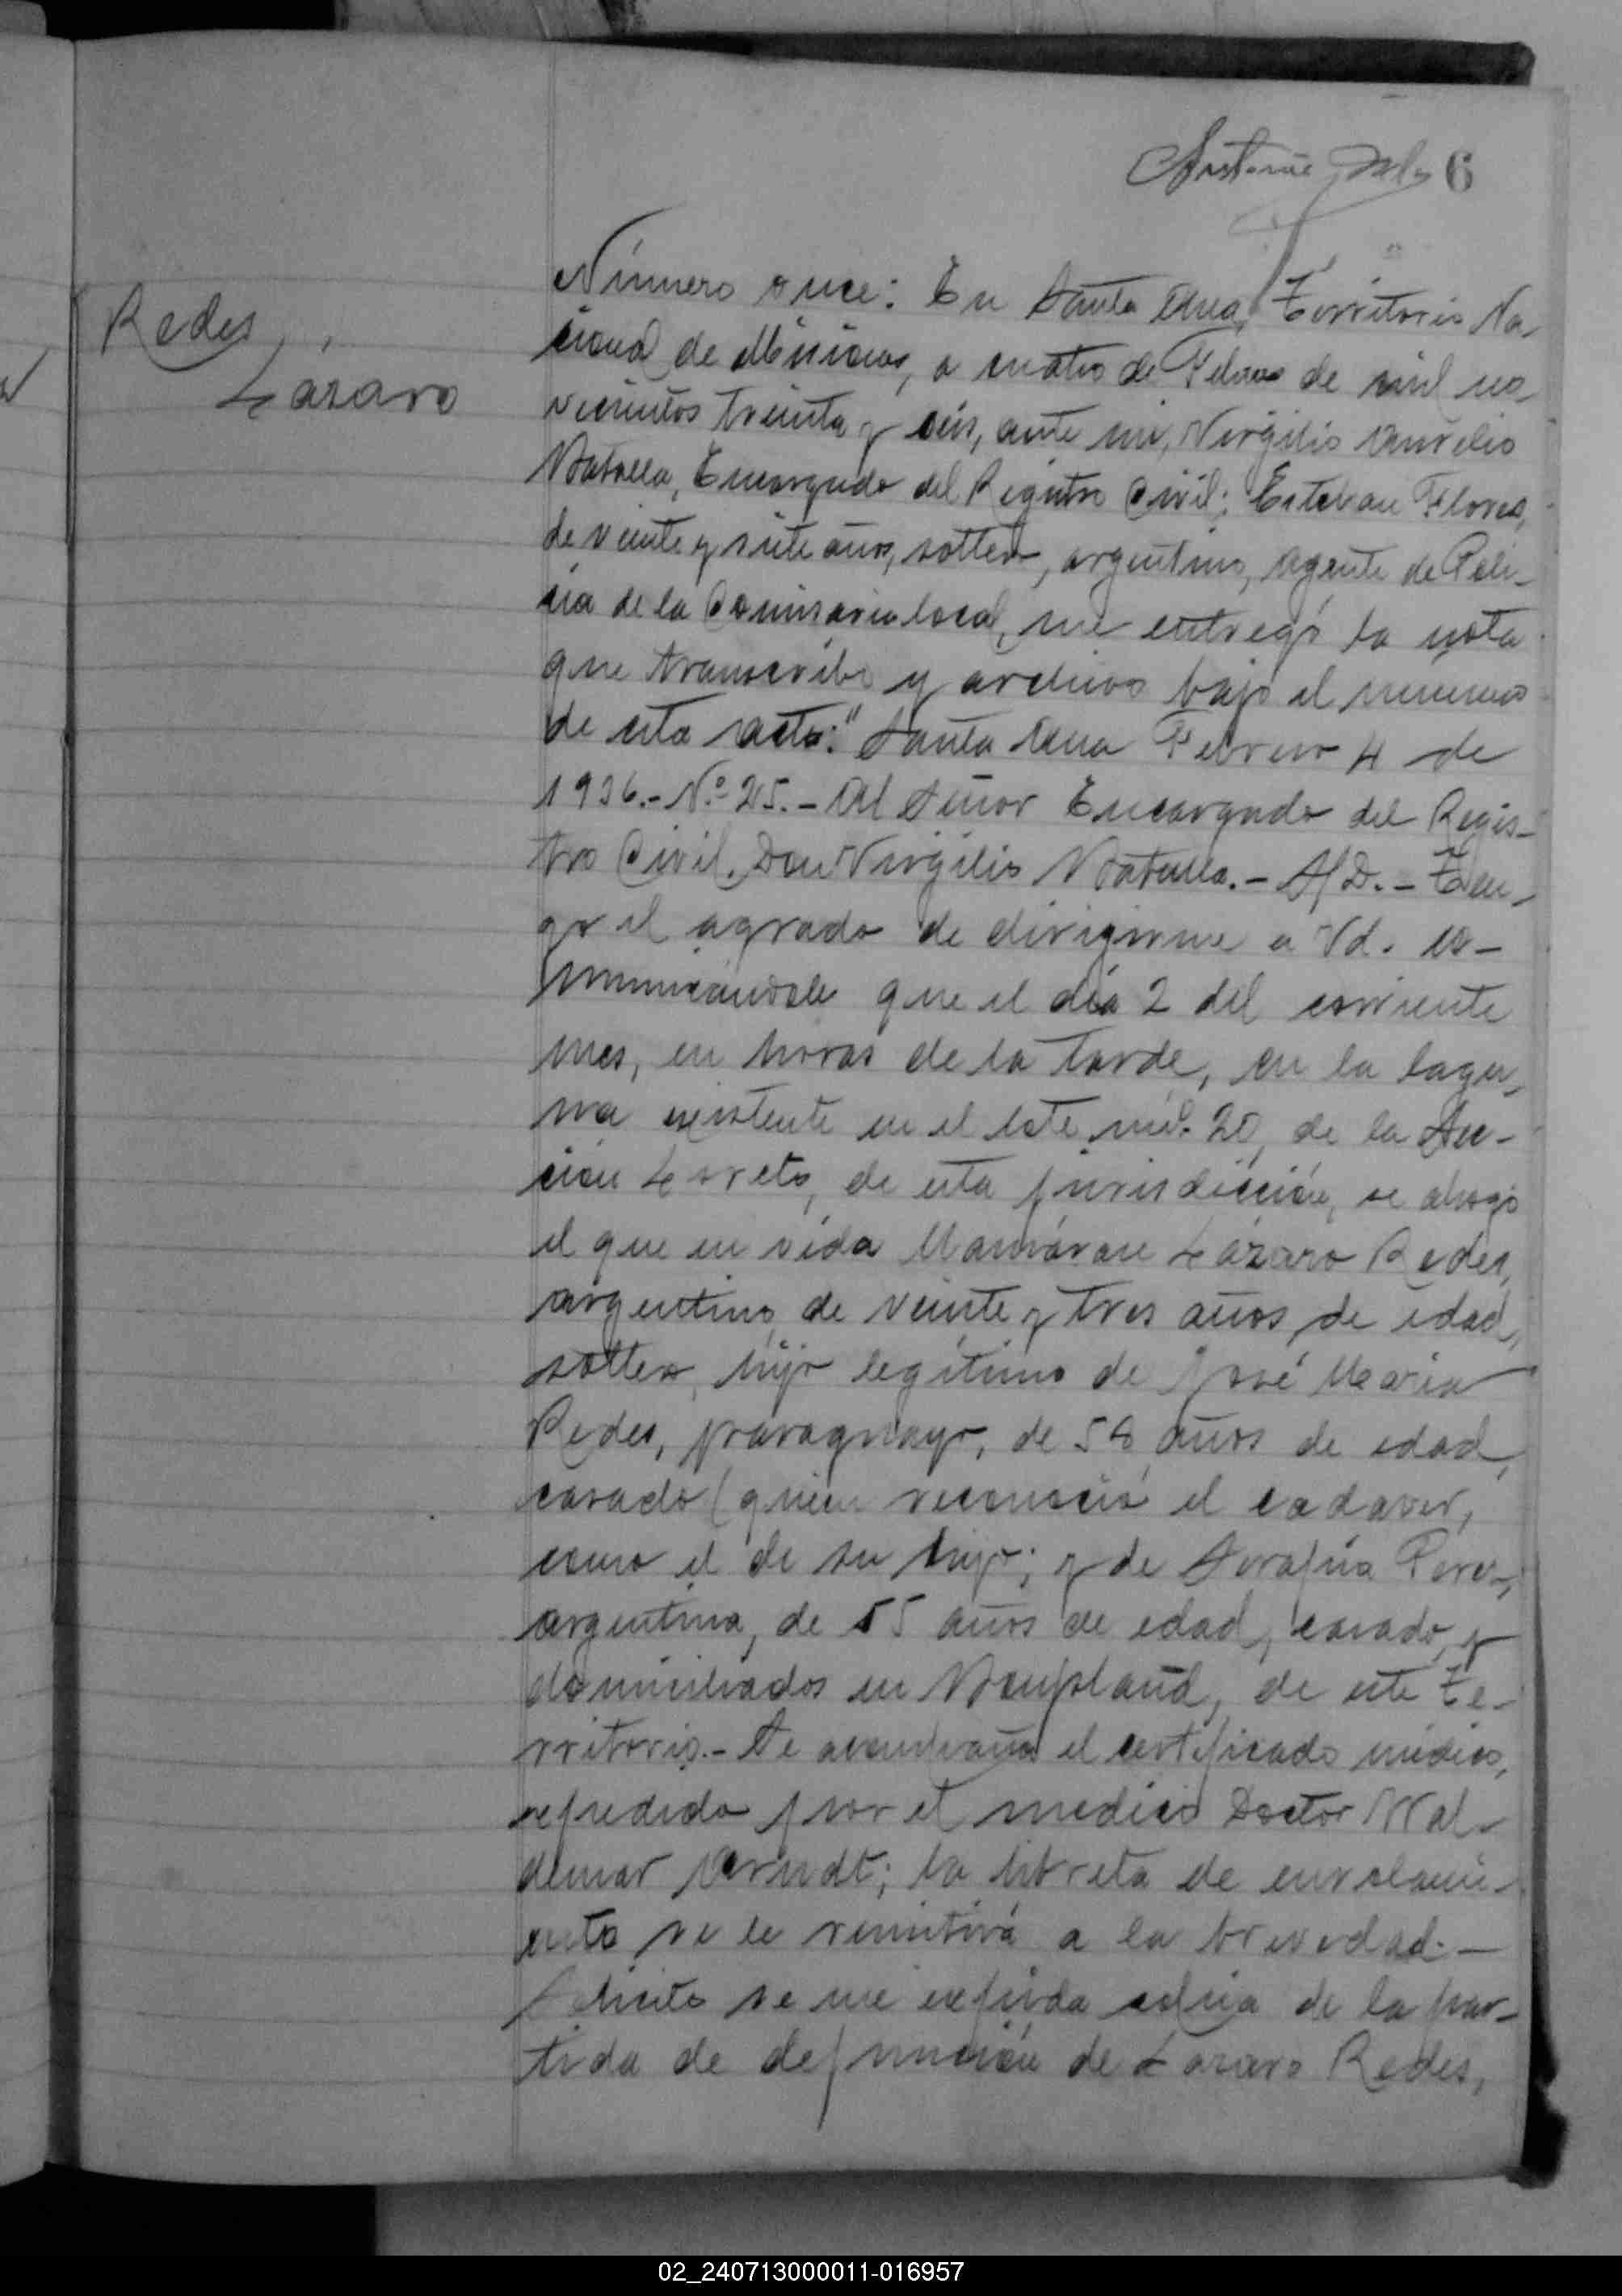 6
Redes,
Lázaro
Número once: En Santa Ana, Territorio Na-
cional de Misiones, a cuatro de Febrero de mil no-
vecientos treinta y seis, ante mi, Virgilio Aurelio
Batalla, Encargado del Registro Civil; Esteban Flores,
de veinte y siete años, soltero, argentino, Agente de Poli-
cia de la Comisaria local, me entregó la nota
que transcribo y archivo bajo el numero
de esta acta: "Santa Ana Febrero 4 de
1936.- N.º 25.- Al Señor Encargado del Regis-
tro Civil. Don Virgilio Batalla.- S/D.- Ten-
go el agrado de dirigirme a Vd. co-
municandole que el día 2 del corriente
mes, en horas de la tarde, en la lagu-
na existente en el lote nº. 20, de la Sec-
ción Loreto, de esta jurisdicción, se ahogó
el que en vida llamárase Lázaro Redes,
argentino, de veinte y tres años, de edad,
soltero, hijo legítimo de José Maria
Redes, paraguayo, de 58 años de edad,
casado (quien reconoció el cadaver,
como el de su hijo; y de Serafina Perez,
argentina, de 55 años de edad, casado, y
domiciliados en Bonpland, de este Te-
rritorio.- Se acompaña el certificado médico,
expedido por el medico Doctor Wal-
demar Arndt; la libreta de enrolami-
ento se le remitirá a la brevedad.-
Solicito se me expida copia de la par-
tida de defunción de Lázaro Redes,
02_240713000011-016957